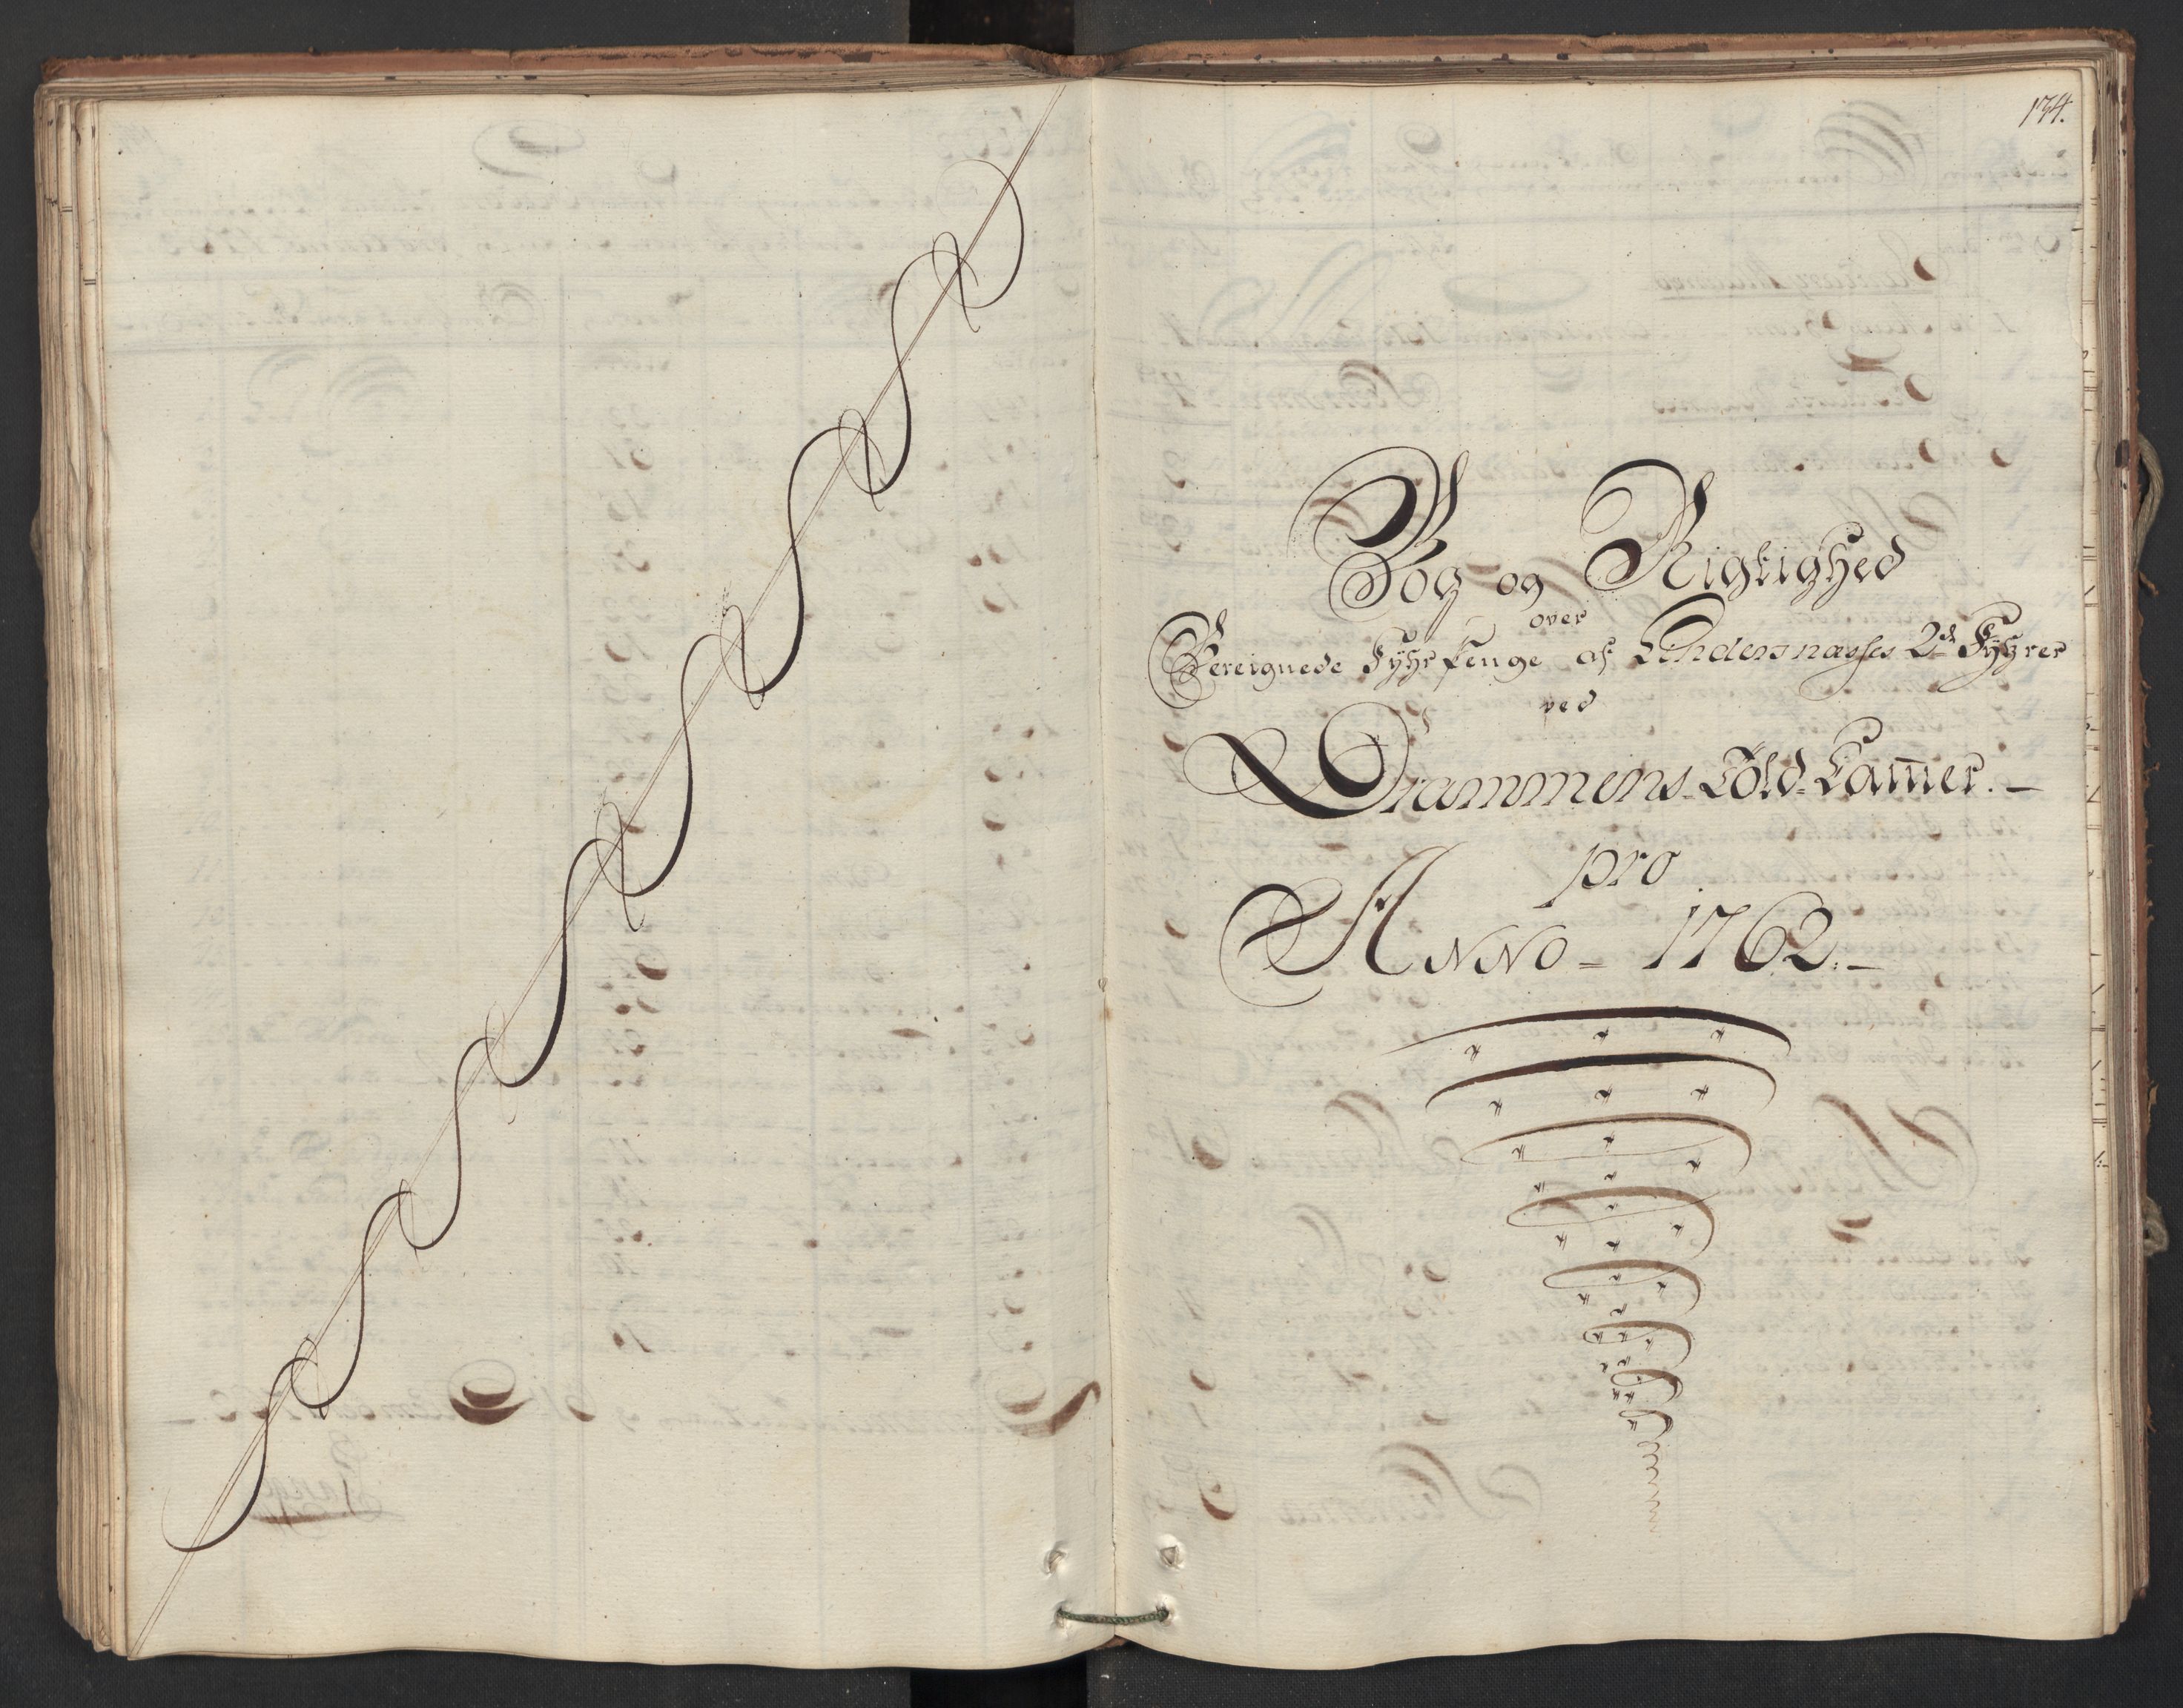 174.
Bog og Rigtighed
over
Bereignede Fyhr Penge af Lindersnæsses 2de Fyhrer
ved
Drammens Told-Camer.
pro
Anno - 1762.